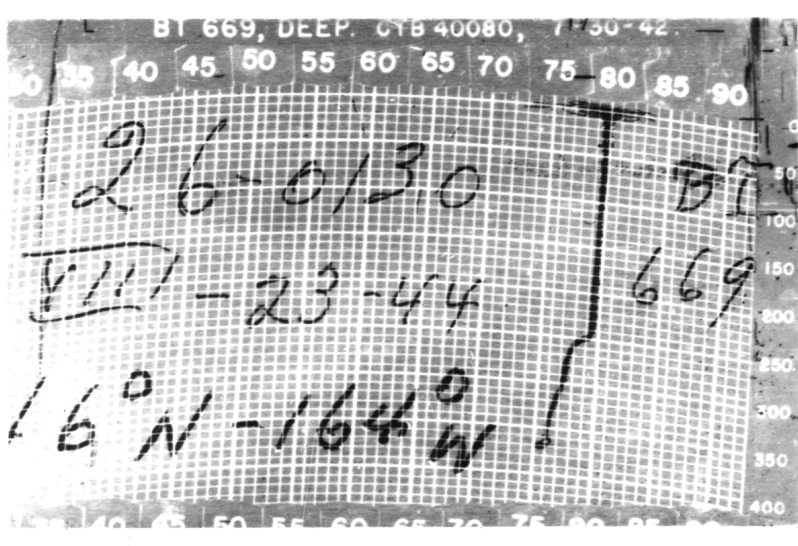 BT 669, DEEP. CTB 40080, 7-30-42.
30 35 40 45 50 55 60 65 70 75 80 85 90
26-0130
BT
669
VIII-23-44
16°N-164°W
0
50
100
150
200
250
300
350
400
35 40 45 50 55 60 65 70 75 80 85 90